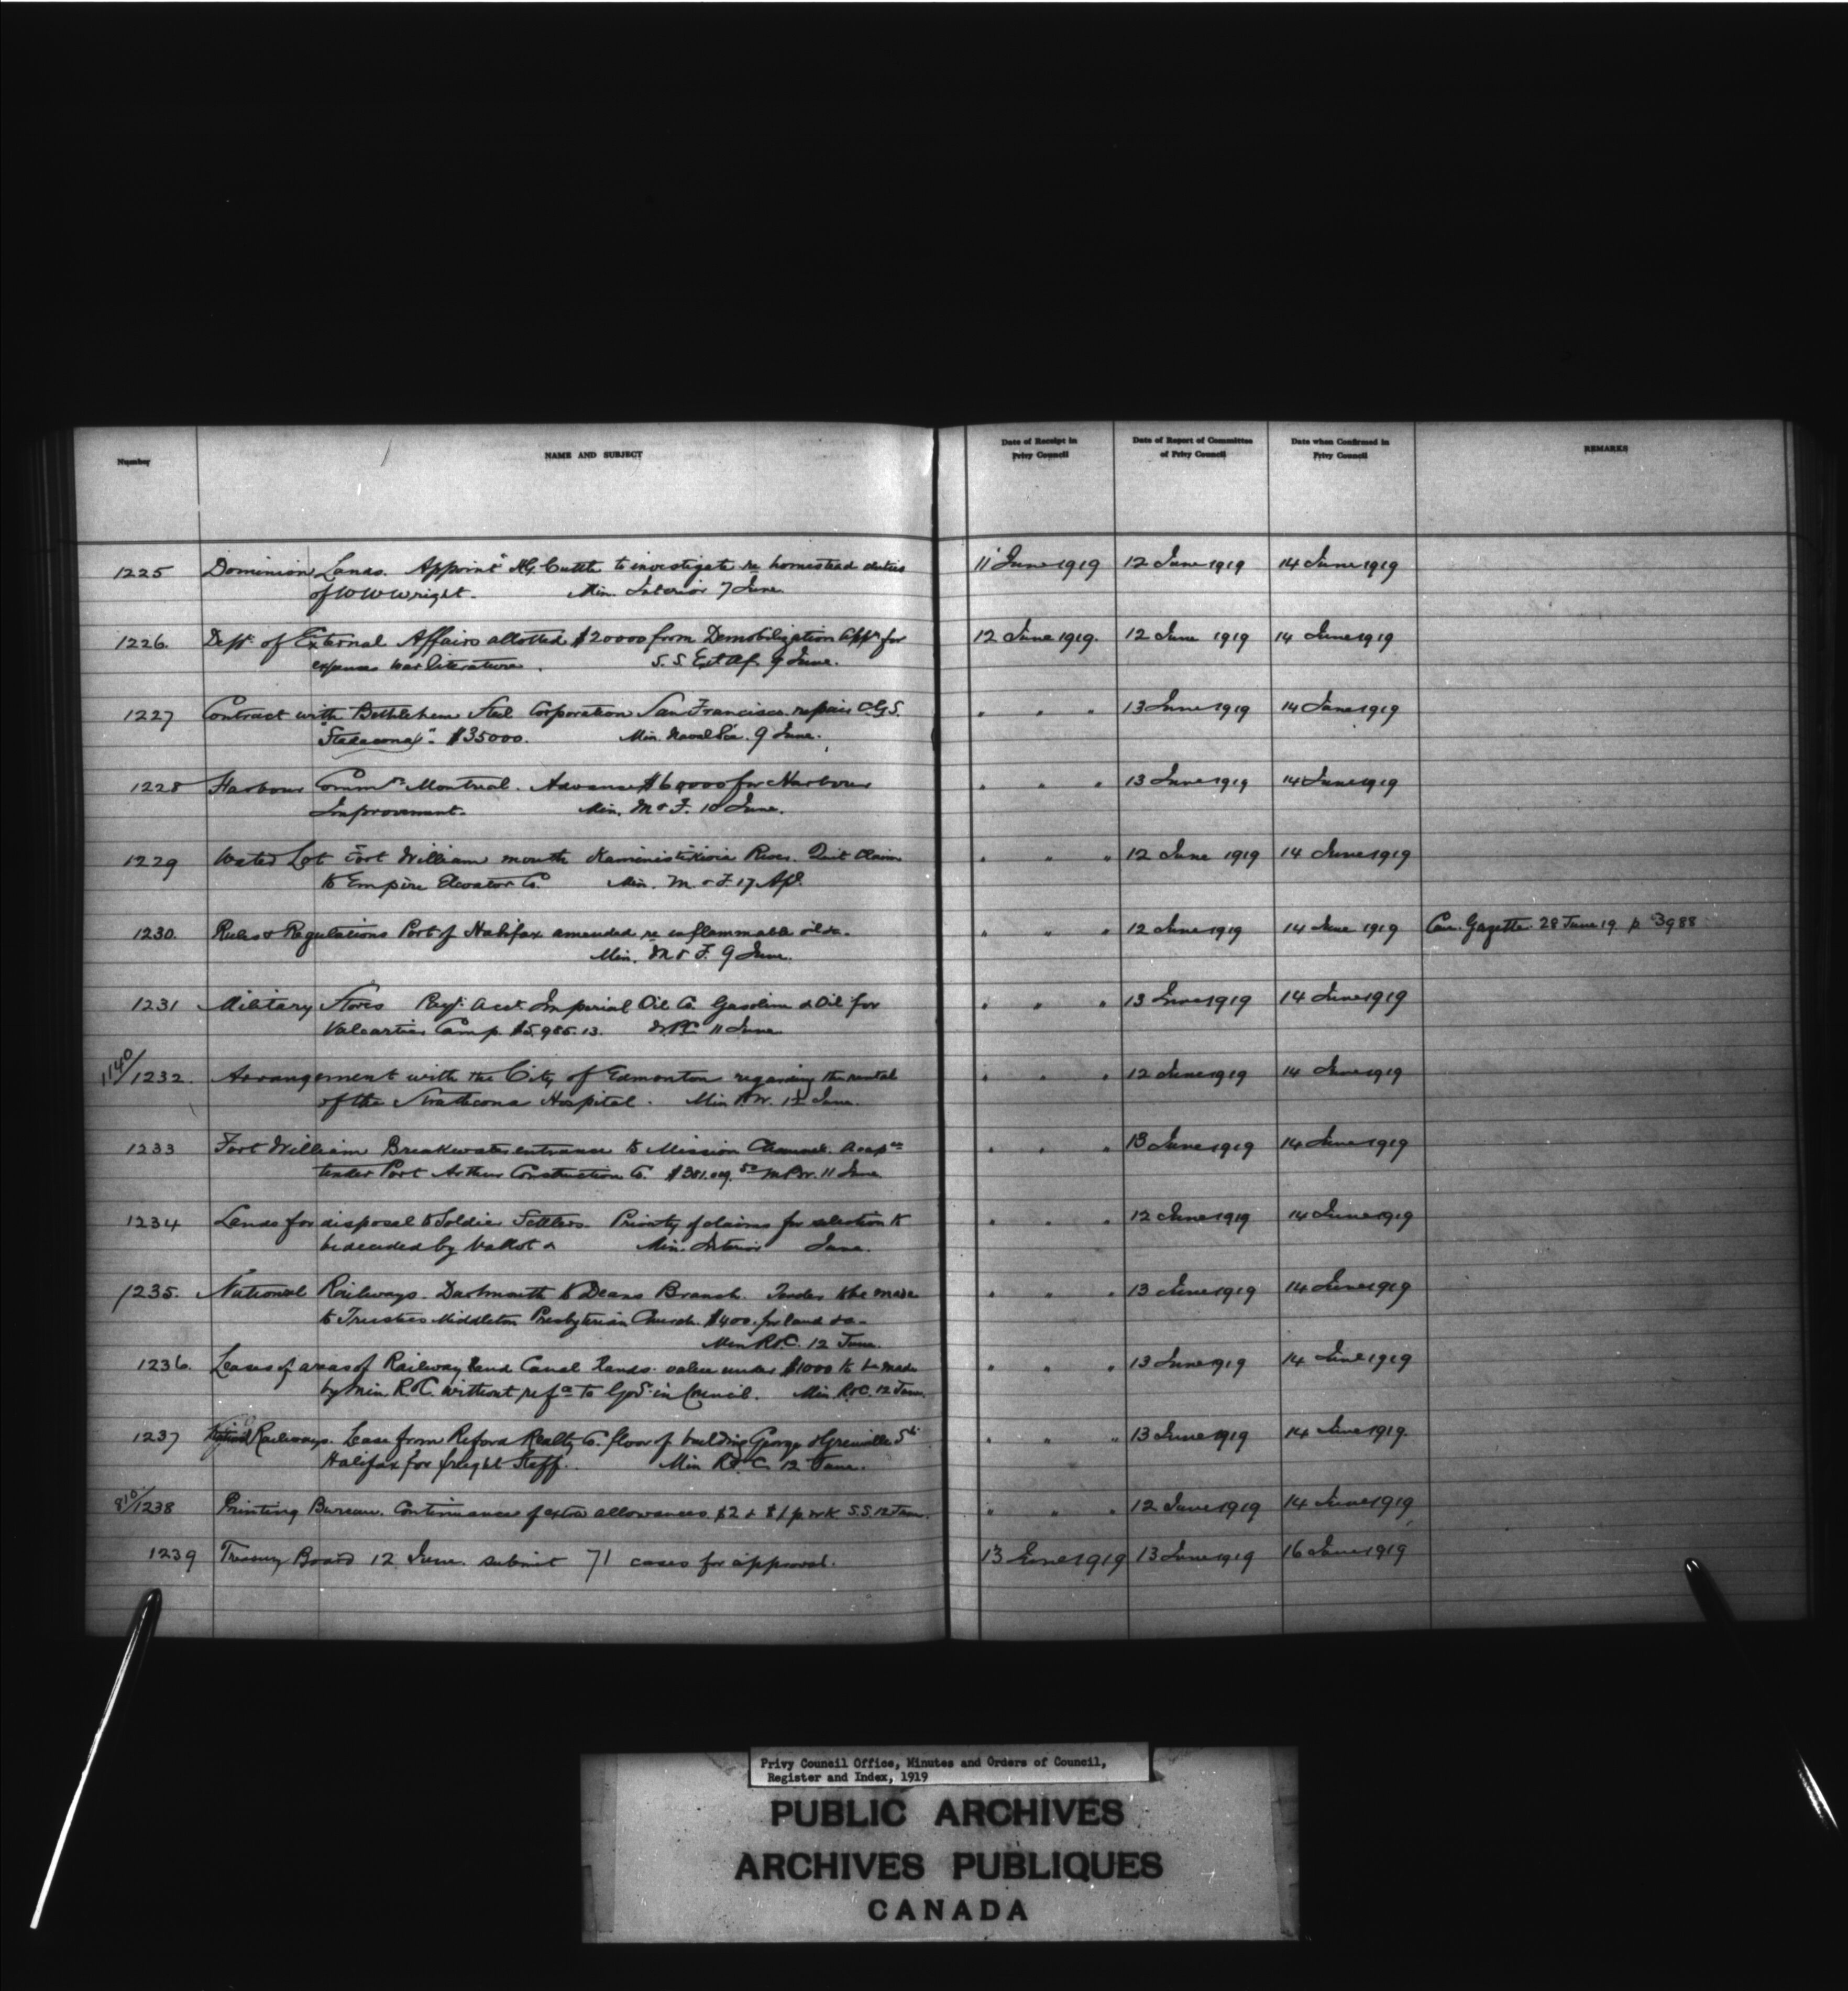 Number
NAME AND SUBJECT
Date of Receipt in Privy Council
Date of Report of Committee of Privy Council
Date when Confirmed in Privy Council
REMARKS
1225 Dominion Lands. Appoint^t to investigate re homestead duties 11 June 1919 12 June 1919 14 June 1919
of W W Wright. Min. Interior 7 June
1226. Dept. of External Affairs allotted $20000 from Demobilization App^n for 12 June 1919. 12 June 1919 14 June 1919
expenses war literature. S. S. Ext Af. 9 June.
1227 Contract with Bethlehem Steel Corporation San Francisco repairs C.G.S. " " " 13 June 1919 14 June 1919
"Stadacona". $35000. Min. Naval Ser. 9 June.
1228 Harbour Comm^rs Montreal. Advance for Harbour " " " 13 June 1919 14 June 1919
Improvement. Min. M & F. 10 June.
1229 Water Lot Fort William mouth Kaministikwia River. Quit Claim " " " 12 June 1919 14 June 1919
to Empire Elevator Co. Min. M. & F. 17 Apl.
1230. Rules & Regulations Port of Halifax amended re inflammable oil &c. " " " 12 June 1919 14 June 1919 Can. Gazette. 28 June 19. p 3988
Min. M & F. 9 June.
1231 Military Stores Pay^t. Acct Imperial Oil Co. Gasoline & Oil for " " " 13 June 1919 14 June 1919
Valcartier Camp. $5,985.13. 11 June
1140/1232. Arrangement with the City of Edmonton regarding the rental " " " 12 June 1919 14 June 1919
of the Strathcona Hospital. Min P.W. 12 June.
1233 Fort William Breakwater entrance to Mission Channel. Accep^ce " " " 13 June 1919 14 June 1919
tender Port Arthur Construction Co. M P.W. 11 June
1234 Lands for disposal to Soldier Settlers. Priority of claims for selection to " " " 12 June 1919 14 June 1919
be decided by ballot &c Min. Interior June.
1235. National Railways. Dartmouth to Deans Branch. Tender to be made " " " 13 June 1919 14 June 1919
to Trustees Middleton Presbyterian Church $400. for land &c.
Min R&C. 12 June.
1236. Leases of areas of Railway and Canal lands. value under $1000 to be made " " " 13 June 1919 14 June 1919
by Min. R&C. without ref^ce to Gov^r. in Council. Min. R&C. 12 June.
1237 National Railways. Lease from Reford Realty Co. floor of building George & Grenville St^s. " " " 13 June 1919 14 June 1919
Halifax for freight Staff. Min R & C. 12 June.
810/1238 Printing Bureau. Continuance of extra allowances $2 & $1 p. wk S.S. 12 June. " " " 12 June 1919 14 June 1919
1239 Treasury Board 12 June. submit 71 cases for approval. 13 June 1919 13 June 1919 16 June 1919
Privy Council Office, Minutes and Orders of Council,
Register and Index, 1919
PUBLIC ARCHIVES
ARCHIVES PUBLIQUES
CANADA